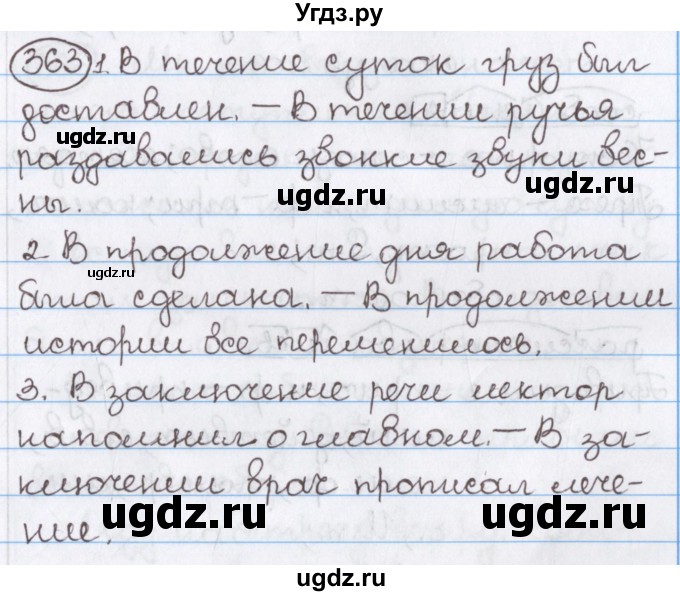 Угдз.ру
363 1. В течение суток груз был
доставлен. – В течении ручья
ugdz.ru
раздавались звонкие звуки вес-
ugdz.ru ugdz.ru
ны.
2 В продолжение дня работа
ugdz.ru
была сделана. – В продолжении
истории все переменилось.
3. В заключение речи лектор
напомнил о главном. – В за-
ключении врач прописал лече-
ние.
ugdz.ru ugdz.ru
ugdz.ru